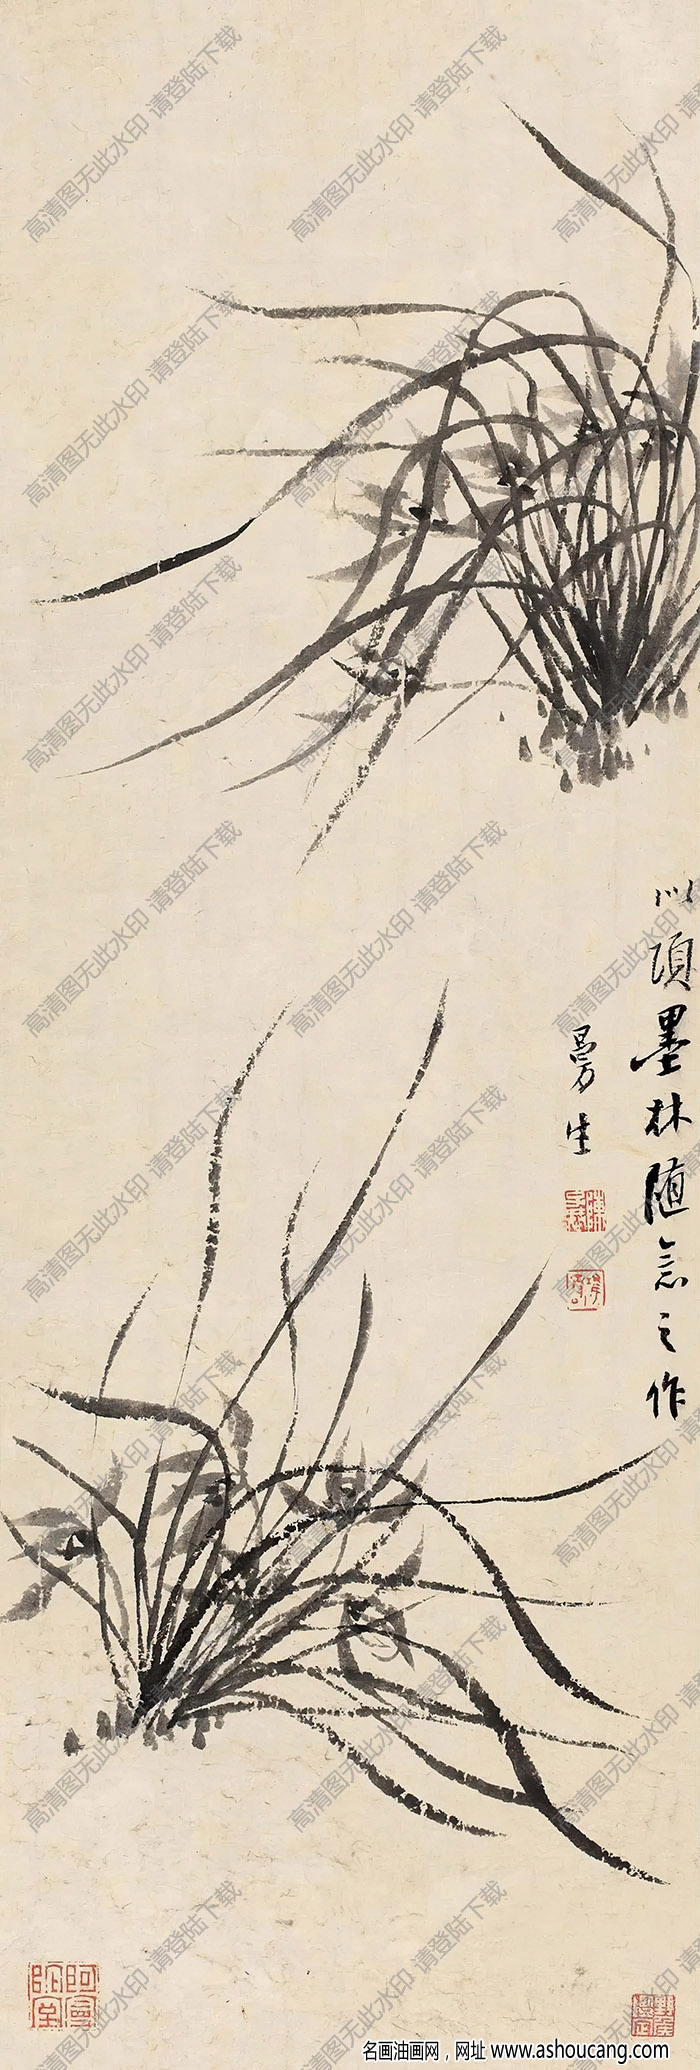 似项墨林随意之作
曼生
高清图无此水印 请登陆下载
名画油画网，网址 www.ashoucang.com